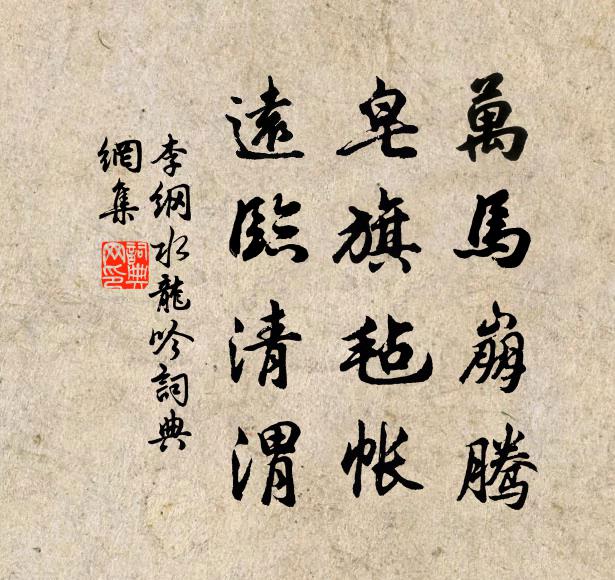 萬馬崩騰
皂旗毡帳
遠臨清渭
李纲水龍吟詞典
網集
詞典
网印